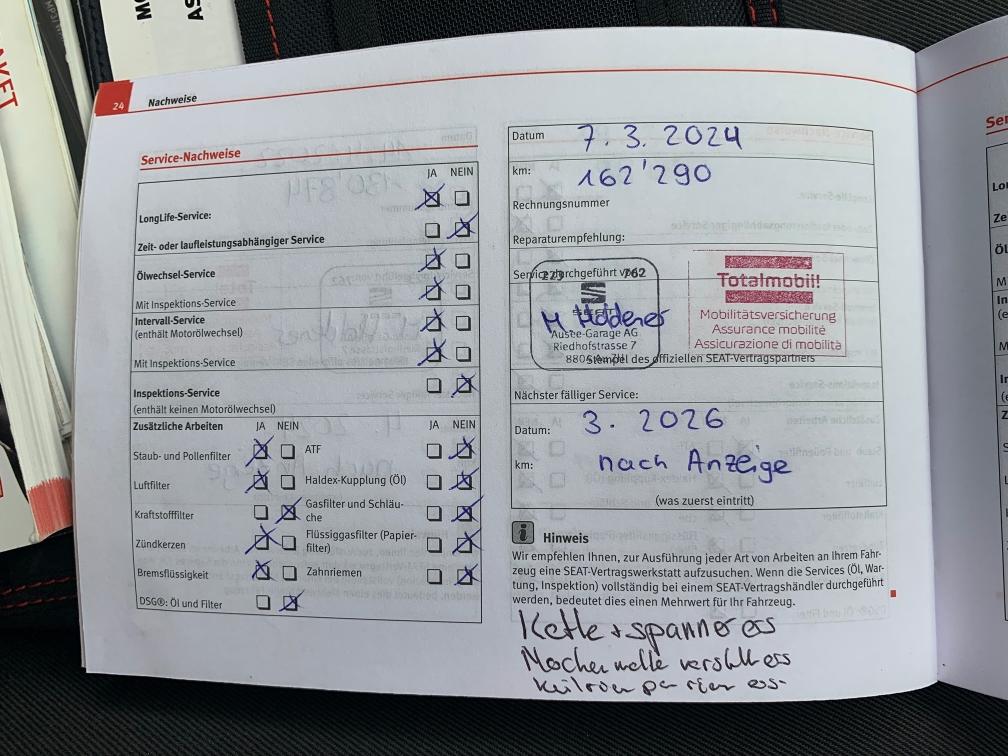 24
Nachweise
Service-Nachweise
JA NEIN
LongLife-Service:
Zeit- oder laufleistungsabhängiger Service
Ölwechsel-Service
Mit Inspektions-Service
Intervall-Service
(enthält Motorölwechsel)
Mit Inspektions-Service
Inspektions-Service
(enthält keinen Motorölwechsel)
Zusätzliche Arbeiten JA NEIN JA NEIN
Staub- und Pollenfilter ATF
Luftfilter Haldex-Kupplung (Öl)
Kraftstofffilter Gasfilter und Schläu-
che
Zündkerzen Flüssiggasfilter (Papier-
filter)
Bremsflüssigkeit Zahnriemen
DSG®: Öl und Filter
Datum 7. 3. 2024
km: 162'290
Rechnungsnummer
Reparaturempfehlung:
Service durchgeführt von:
223 762
SEAT
Austee-Garage AG
Riedhofstrasse 7
8804 Au ZH
Totalmobil!
Mobilitätsversicherung
Assurance mobilité
Assicurazione di mobilità
Stempel des offiziellen SEAT-Vertragspartners
Nächster fälliger Service:
Datum: 3. 2026
km: nach Anzeige
(was zuerst eintritt)
Hinweis
Wir empfehlen Ihnen, zur Ausführung jeder Art von Arbeiten an Ihrem Fahr-
zeug eine SEAT-Vertragswerkstatt aufzusuchen. Wenn die Services (Öl, War-
tung, Inspektion) vollständig bei einem SEAT-Vertragshändler durchgeführt
werden, bedeutet dies einen Mehrwert für Ihr Fahrzeug.
Kette + spanner